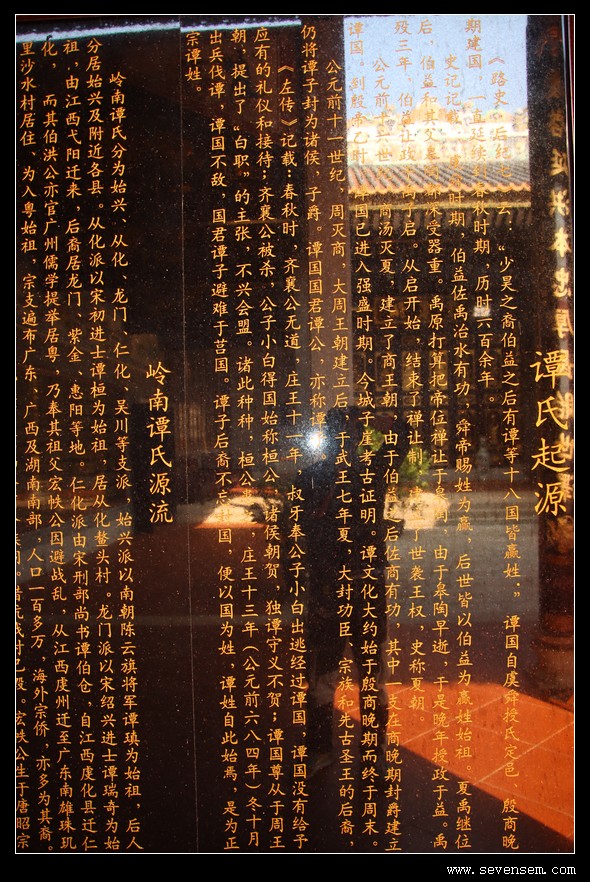 谭氏起源
《路史·后纪七》云："少昊之裔伯益之后有谭等十八国皆嬴姓；" 谭国自虞舜授氏定邑、殷商晚
期建国，一直延续到春秋时期，历时六百余年。
史记记载，虞舜时期，伯益佐禹治水有功，舜帝赐姓为嬴，后世皆以伯益为嬴姓始祖。夏禹继位
后，伯益和其父皋陶都深受器重。禹原打算把帝位禅让于皋陶，由于皋陶早逝，于是晚年授政于益。禹
殁三年，伯益让政于禹子启。从启开始，结束了禅让制，建立了世袭王权，史称夏朝。
公元前十一世纪，商汤灭夏，建立了商王朝，由于伯益之后佐商有功，其中一支在商晚期封爵建立
谭国。到殷帝乙时，谭国已进入强盛时期。今城子崖考古证明。谭文化大约始于殷商晚期而终于周末。
公元前十一世纪，周灭商，大周王朝建立后，于武王七年夏，大封功臣、宗族和先古圣王的后裔，
仍将谭子封为诸侯，子爵。谭国国君谭公，亦称谭子。
《左传》记载：春秋时，齐襄公无道，庄王十一年，叔牙奉公子小白出逃经过谭国，谭国没有给予
应有的礼仪和接待；齐襄公被杀，公子小白得国始称桓公，诸侯朝贺，独谭守义不贺；谭国尊从于周王
朝，提出了"白职"的主张，不兴会盟。诸此种种，桓公，庄王十三年（公元前六八四年）冬十月
出兵伐谭，谭国不敌，国君谭子避难于莒国。谭子后裔不忘国，便以国为姓，谭姓自此始焉，是为正
宗谭姓。
岭南谭氏源流
岭南谭氏分为始兴、从化、龙门、仁化、吴川等支派，始兴派以南朝陈云旗将军谭瑱为始祖，后人
分居始兴及附近各县。从化派以宋初进士谭桓为始祖，居从化鳌头村。龙门派以宋绍兴进士谭瑞奇为始
祖，由江西弋阳迁来，后裔居龙门、紫金、惠阳等地。仁化派由宋刑部尚书谭伯仓，自江西虔化县迁仁
化，而其伯洪公亦官广州儒学提举居粤，乃奉其祖父宏帙公因避战乱，从江西虔州迁至广东南雄珠玑
里沙水村居住、为入粤始祖，宗支遍布广东、广西及湖南南部，人口一百多万，海外宗侨，亦多为其裔。
宏帙公生于唐昭宗
www.sevensem.com